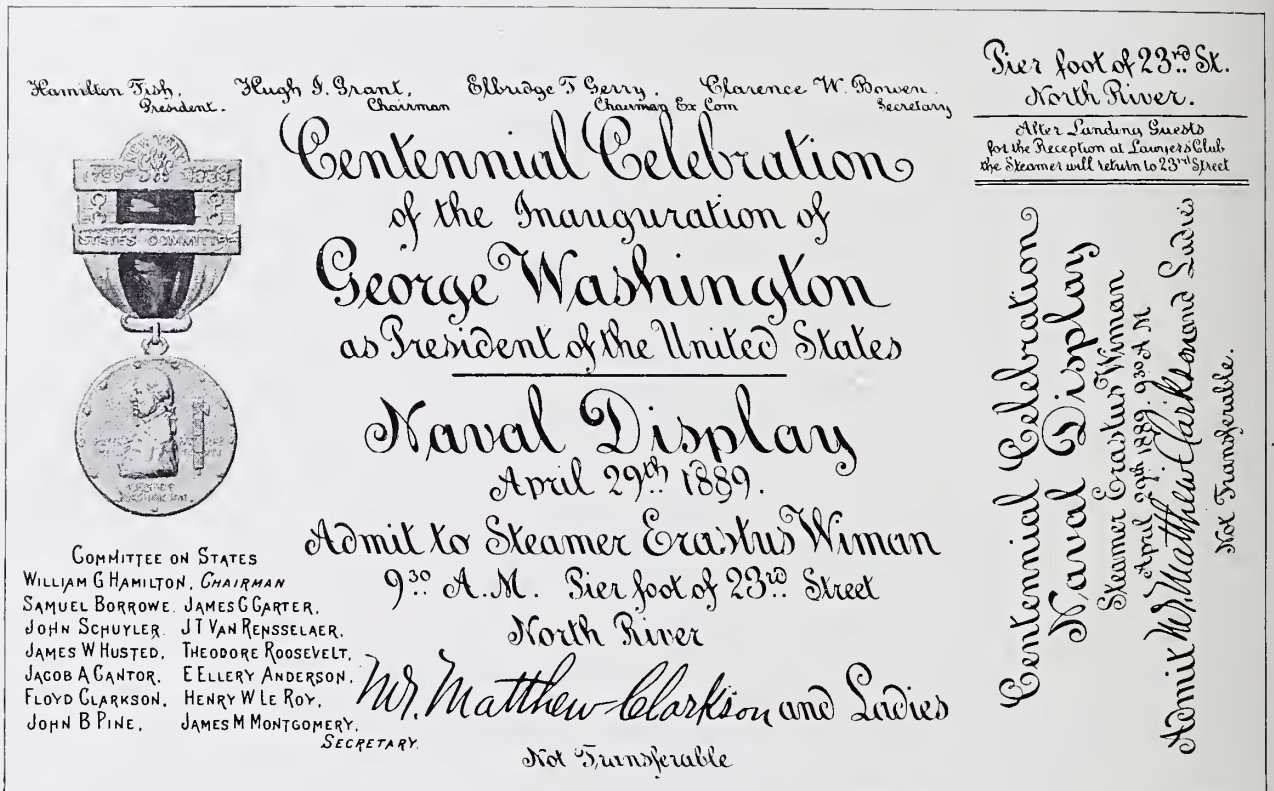 Hamilton Fish, Hugh J. Grant, Elbridge T Gerry, Clarence W. Bowen.
President. Chairman Chairman Ex Com Secretary
Centennial Celebration
of the Inauguration of
George Washington
as President of the United States
Naval Display
April 29th 1889.
Admit to Steamer Erastus Wiman
9 30 A.M. Pier foot of 23rd Street
North River
Mr. Matthew Clarkson and Ladies
Not Transferable
NEW YORK
1789 1889
STATES COMMITTEE
GEORGE
WASHINGTON
COMMITTEE ON STATES
WILLIAM G HAMILTON, CHAIRMAN
SAMUEL BORROWE. JAMES C CARTER,
JOHN SCHUYLER. J T VAN RENSSELAER,
JAMES W HUSTED, THEODORE ROOSEVELT,
JACOB A CANTOR, E ELLERY ANDERSON,
FLOYD CLARKSON, HENRY W LE ROY,
JOHN B PINE, JAMES M MONTGOMERY,
SECRETARY.
Pier foot of 23rd St.
North River.
After Landing Guests
for the Reception at Lawyers Club
the Steamer will return to 23rd Street
Centennial Celebration
Naval Display
Steamer Erastus Wiman
April 29th 1889. 9 30 A M
Admit Mr. Matthew Clarkson and Ladies
Not Transferable.